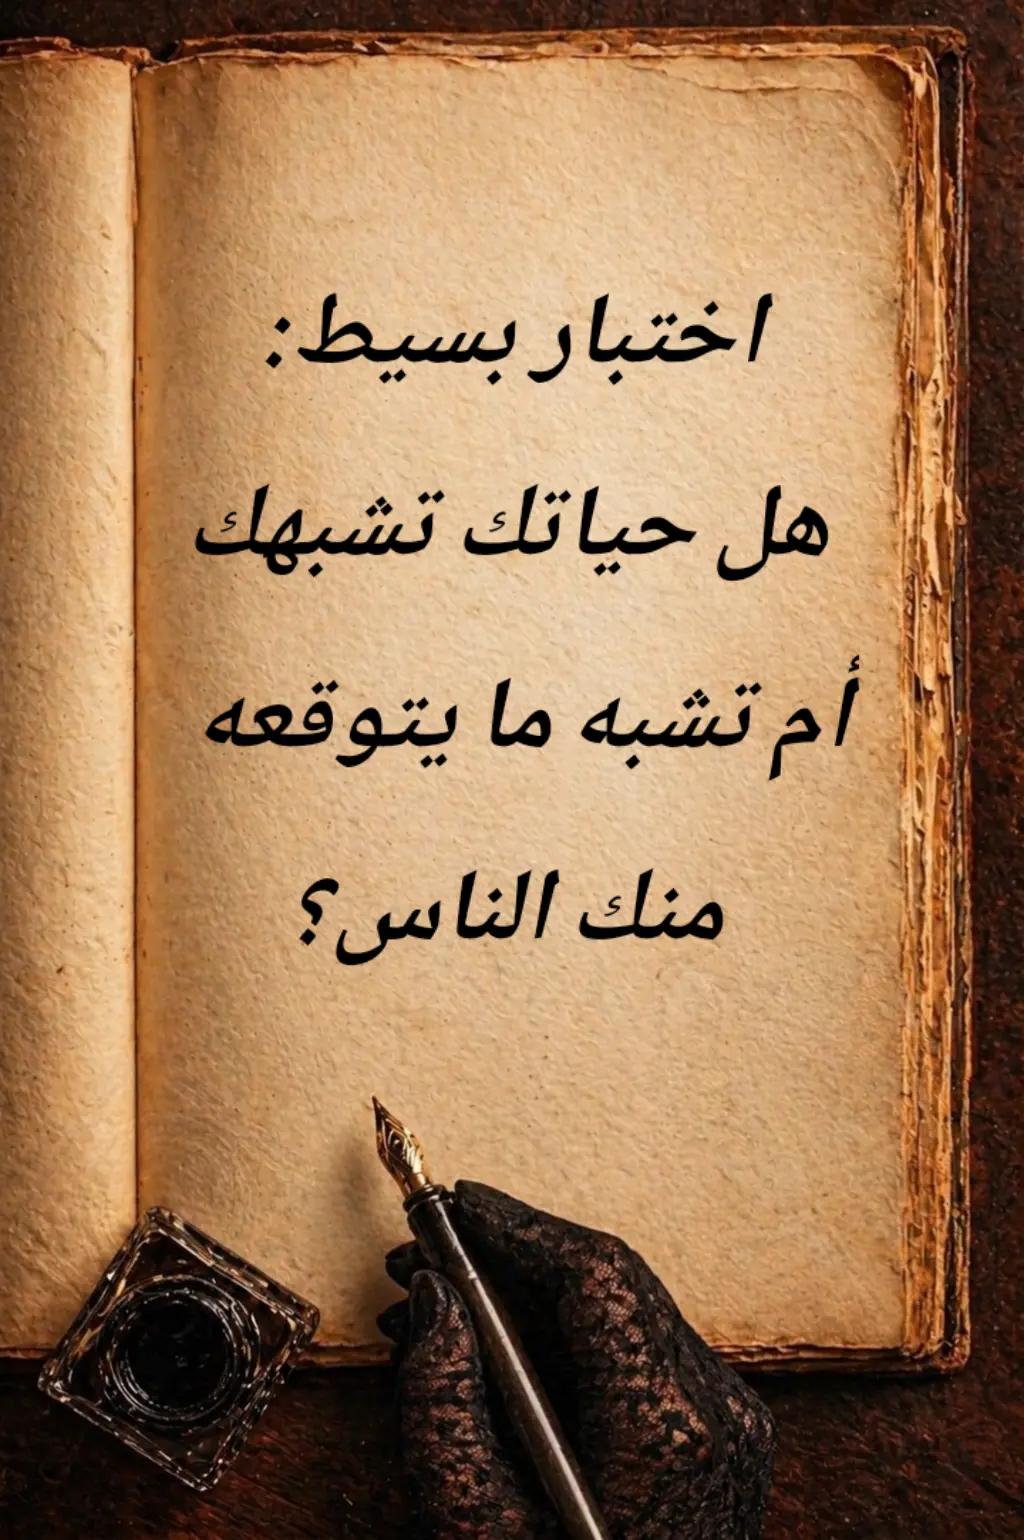 اختبار بسيط:
هل حياتك تشبهك
أم تشبه ما يتوقعه
منك الناس؟